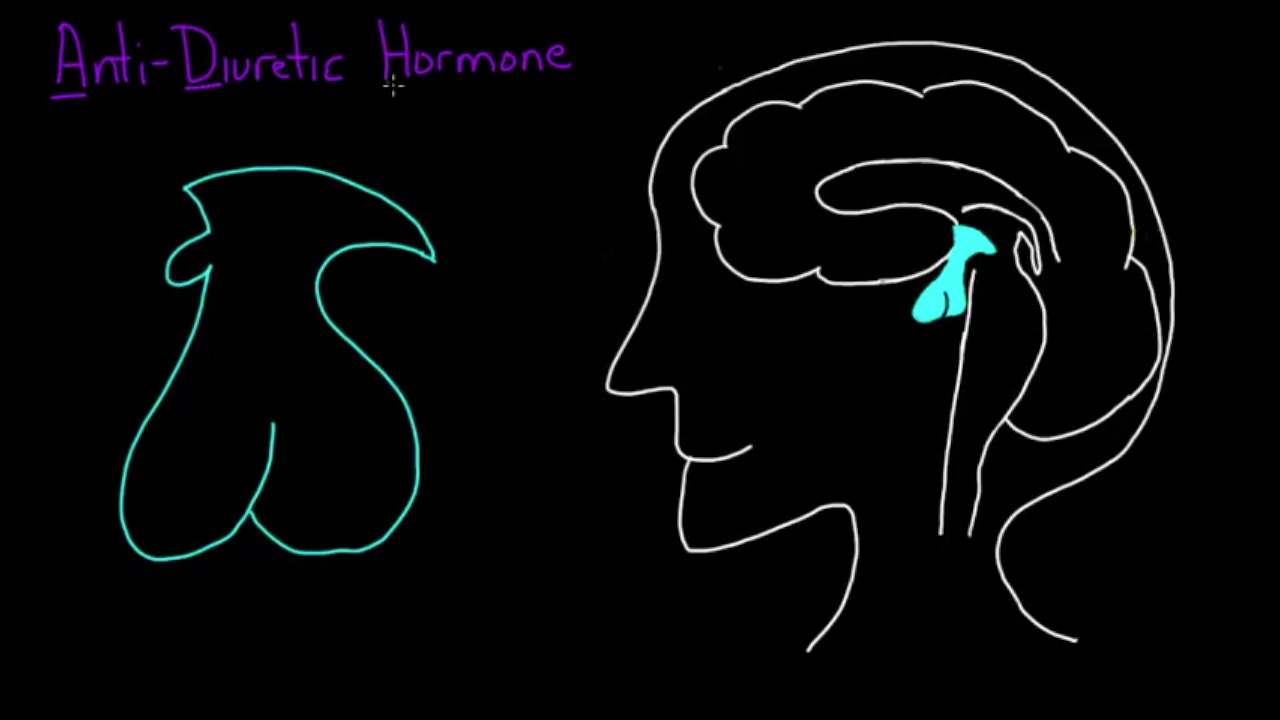 Anti-Diuretic Hormone